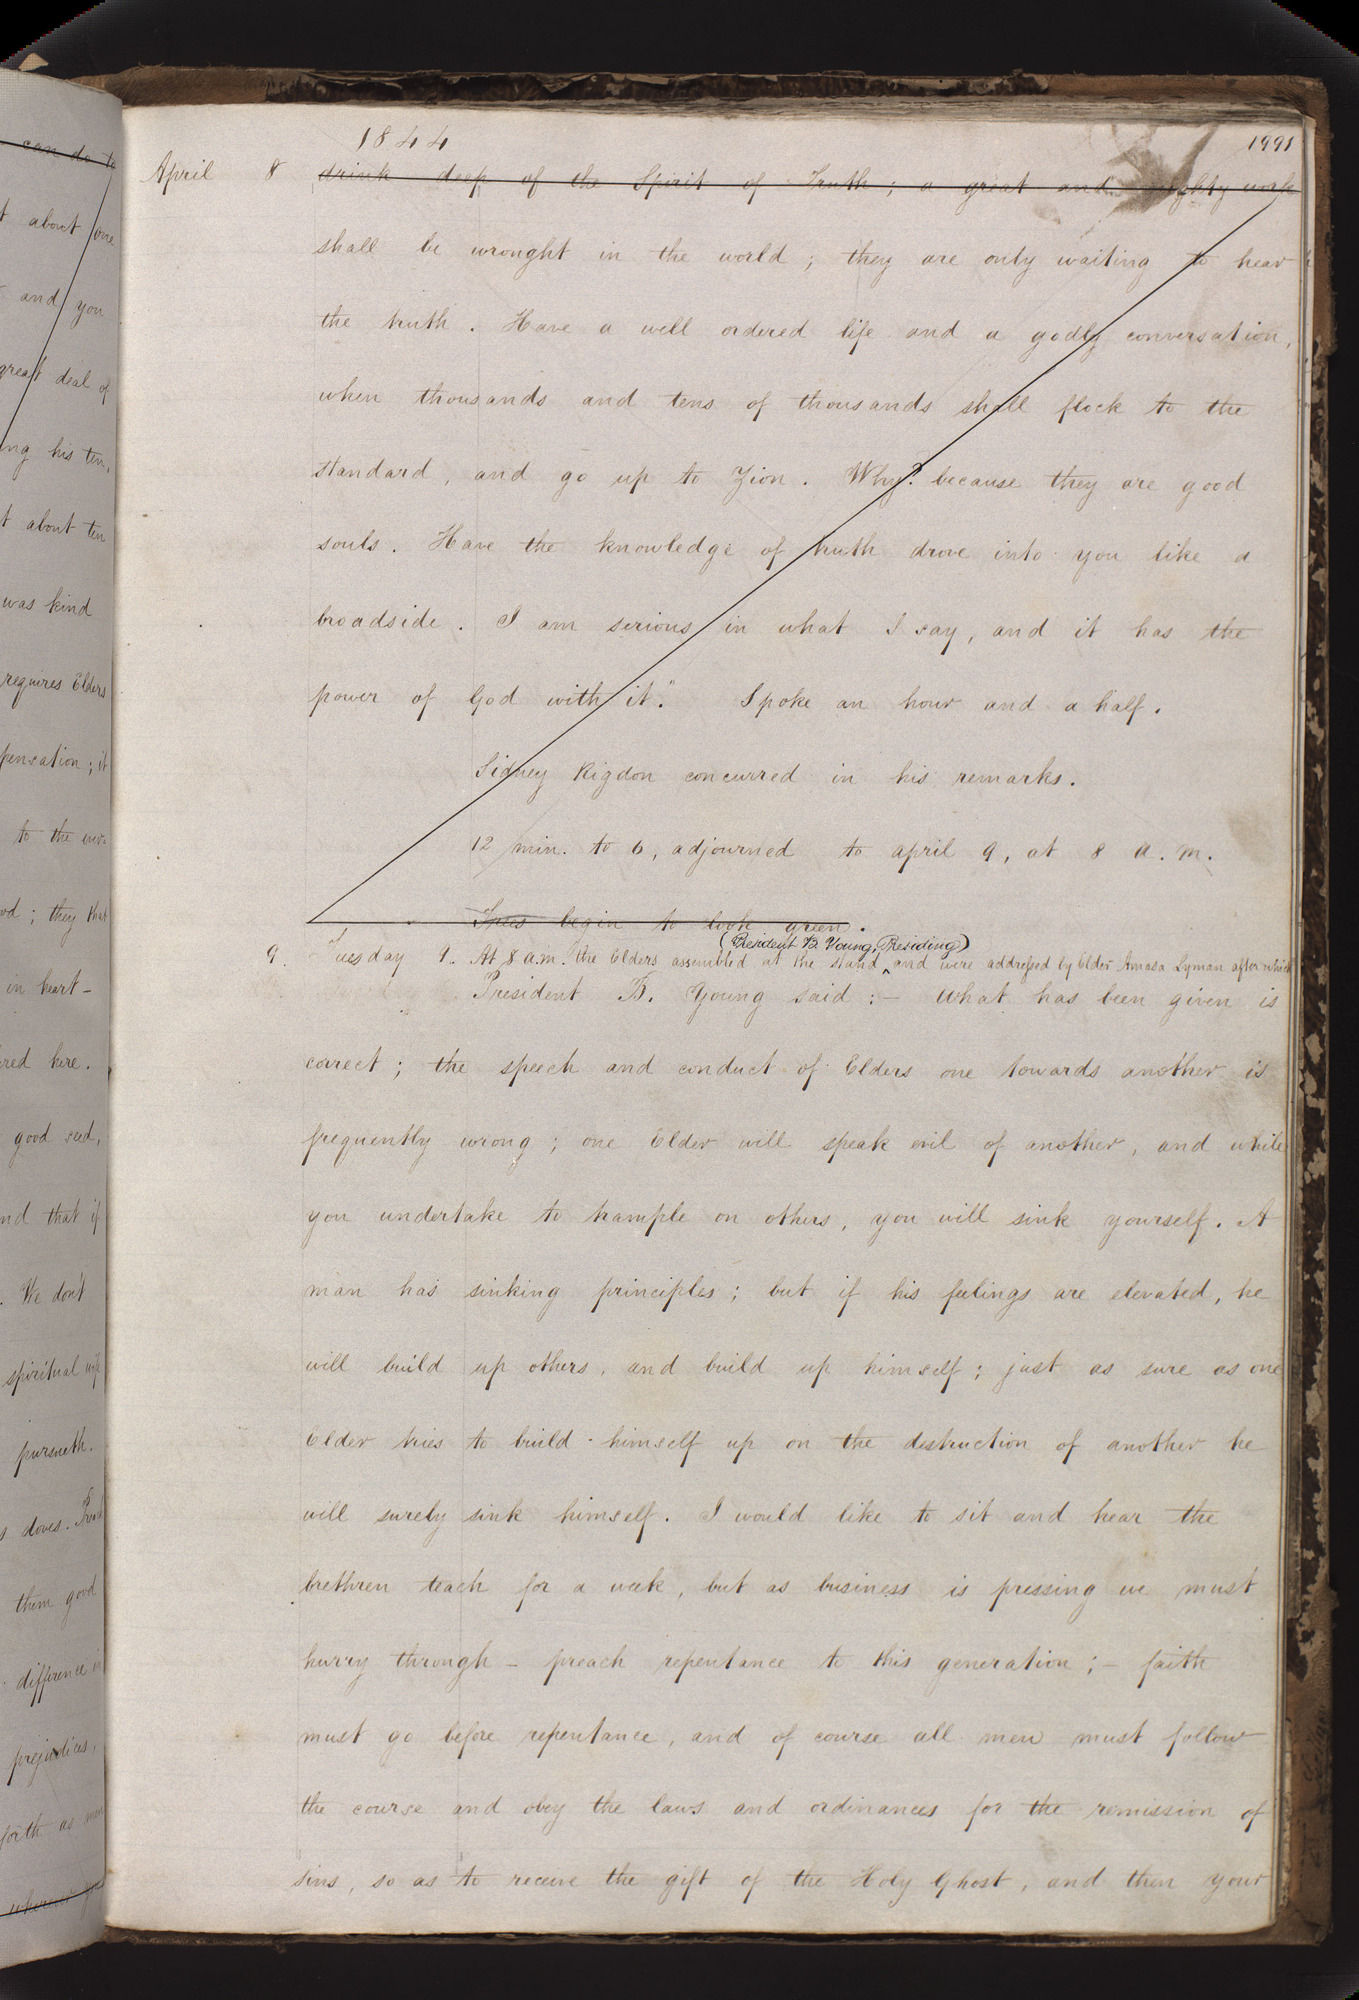 1844
1991
April 8 drink deep of the Spirit of Truth; a great and mighty work
shall be wrought in the world; they are only waiting to hear
the truth. Have a well ordered life and a godly conversation,
when thousands and tens of thousands shall flock to the
standard, and go up to Zion. Why? because they are good
souls. Have the knowledge of truth drove into you like a
broadside. I am serious in what I say, and it has the
power of God with it." Spoke an hour and a half.
Sidney Rigdon concurred in his remarks.
12 min. to 6, adjourned to april 9, at 8 a.m.
Trees begin to look green.
(President B. Young, Presiding)
9. Tuesday 9. At 8 a.m. the Elders assembled at the stand ^ and were addressed by Elder Amasa Lyman after which
President B. Young said:— What has been given is
correct; the speech and conduct of Elders one towards another is
frequently wrong; one Elder will speak evil of another, and while
you undertake to trample on others, you will sink yourself. A
man has sinking principles; but if his feelings are elevated, he
will build up others, and build up himself; just as sure as one
Elder tries to build himself up on the destruction of another he
will surely sink himself. I would like to sit and hear the
brethren teach for a week, but as business is pressing we must
hurry through — preach repentance to this generation;— faith
must go before repentance, and of course all men must follow
the course and obey the laws and ordinances for the remission of
sins, so as to receive the gift of the Holy Ghost, and then your
can do to
about one
and you
great deal of
ng his ten,
t about ten
was kind
requires Elders
pensation; it
to the
od; they that
in heart—
ered here.
good seed,
nd that if
. We don't
spiritual wife
pursueth.
s doves.
them good
difference in
prejudices,
forth as men